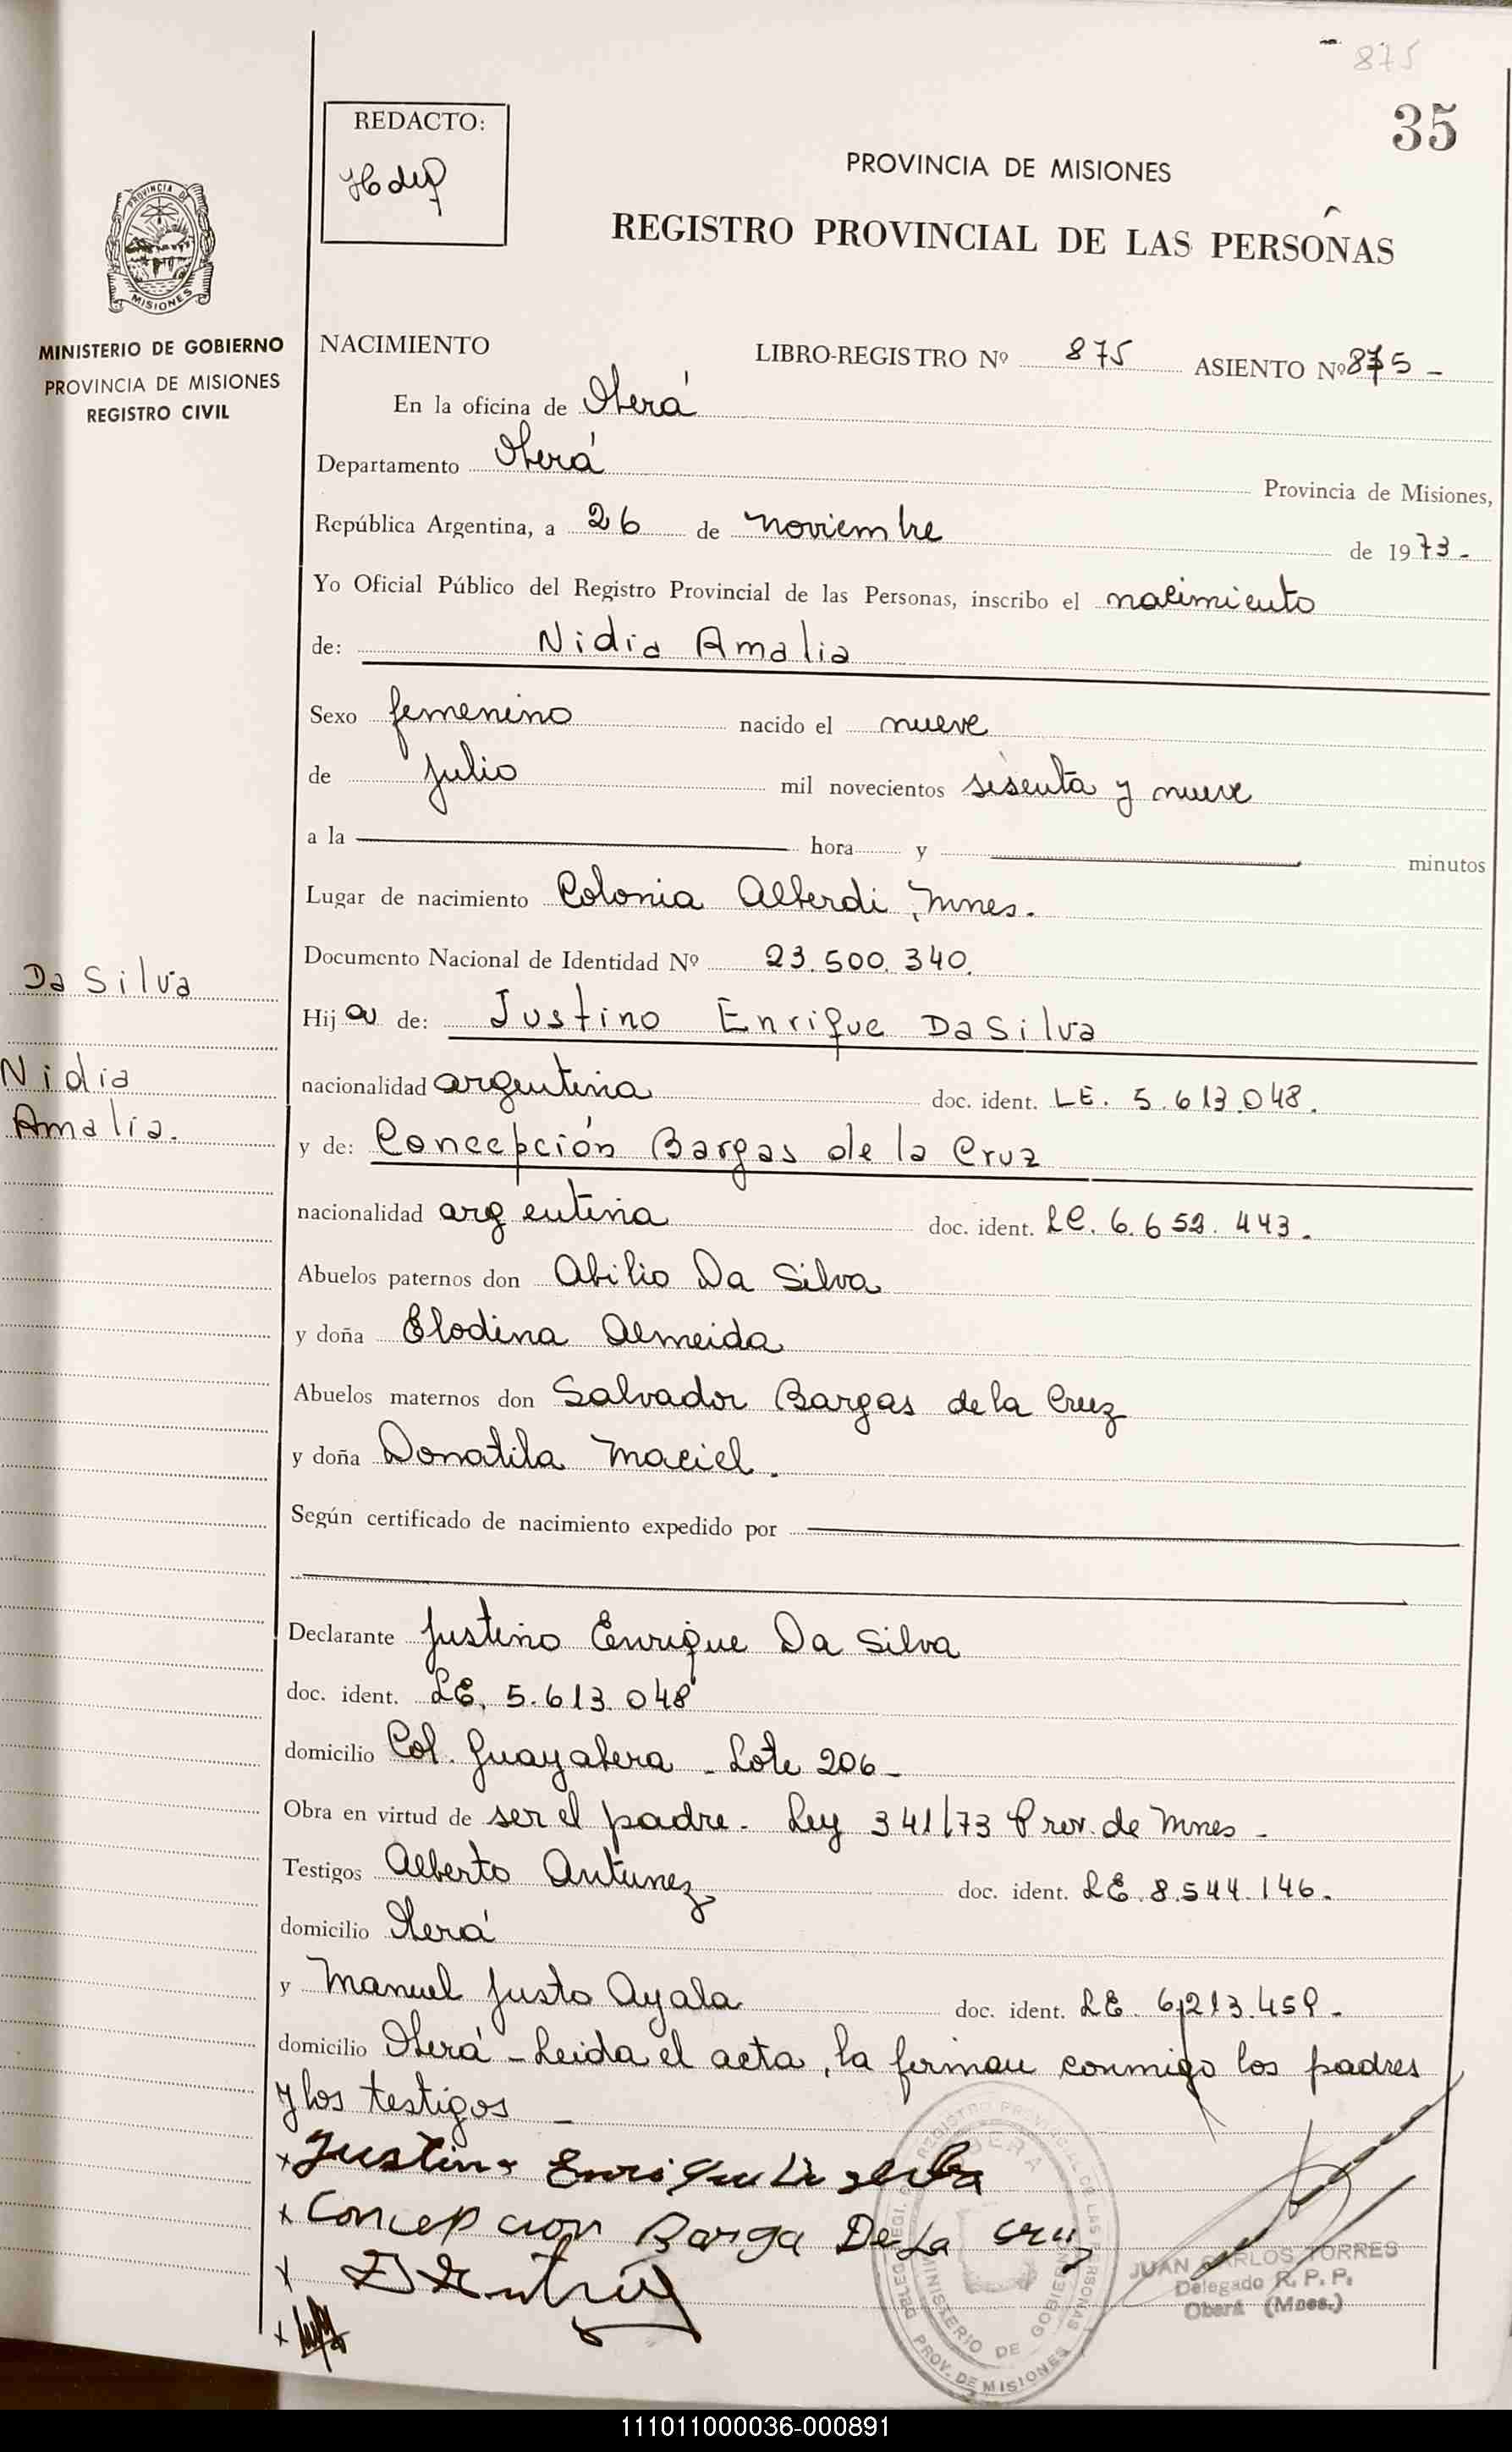 875
35
REDACTO:
PROVINCIA DE MISIONES
REGISTRO PROVINCIAL DE LAS PERSONAS
PROVINCIA DE
MISIONES
MINISTERIO DE GOBIERNO
PROVINCIA DE MISIONES
REGISTRO CIVIL
NACIMIENTO LIBRO-REGISTRO Nº 875 ASIENTO Nº 875 -
En la oficina de Oberá
Departamento Oberá Provincia de Misiones,
República Argentina, a 26 de noviembre de 1973.
Yo Oficial Público del Registro Provincial de las Personas, inscribo el nacimiento
de: Nidia Amalia
Sexo femenino nacido el nueve
de julio mil novecientos sesenta y nueve
a la hora y minutos
Lugar de nacimiento Colonia Alberdi, Mnes.
Documento Nacional de Identidad Nº 23.500.340.
Da Silva
Nidia
Amalia.
Hija de: Justino Enrique Da Silva
nacionalidad argentina doc. ident. LE. 5.613.048.
y de: Concepción Bargas de la Cruz
nacionalidad argentina doc. ident. LC. 6.652.443.
Abuelos paternos don Abilio Da Silva
y doña Elodina Almeida
Abuelos maternos don Salvador Bargas de la Cruz
y doña Donatila Maciel.
Según certificado de nacimiento expedido por
Declarante Justino Enrique Da Silva
doc. ident. LE. 5.613.048
domicilio Col. Guayabera - Lote 206 -
Obra en virtud de ser el padre. Ley 341/73 Prov. de Mnes -
Testigos Alberto Antunez doc. ident. LE. 8.544.146.
domicilio Oberá
y Manuel Justo Ayala doc. ident. LE. 6.213.459.
domicilio Oberá - Leida el acta, la firman conmigo los padres
y los testigos -
x Justino Enrique Da Silva
x Concepcion Barga De La Cruz
x
x
JUAN CARLOS TORRES
Delegado R. P. P.
Oberá (Mnes.)
OBERA
MINISTERIO DE GOBIERNO
PROV. DE MISIONES
111011000036-000891